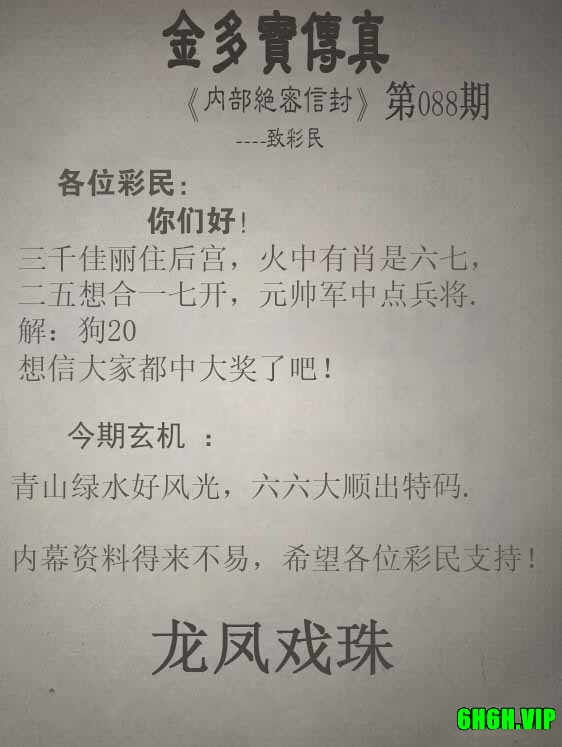 金多寶傳真
《内部絶密信封》第088期
----致彩民
各位彩民:
你们好!
三千佳丽住后宫，火中有肖是六七，
二五想合一七开，元帅军中点兵将.
解：狗20
想信大家都中大奖了吧!
今期玄机 ：
青山绿水好风光，六六大顺出特码.
内幕资料得来不易，希望各位彩民支持!
龙凤戏珠
6H6H.VIP